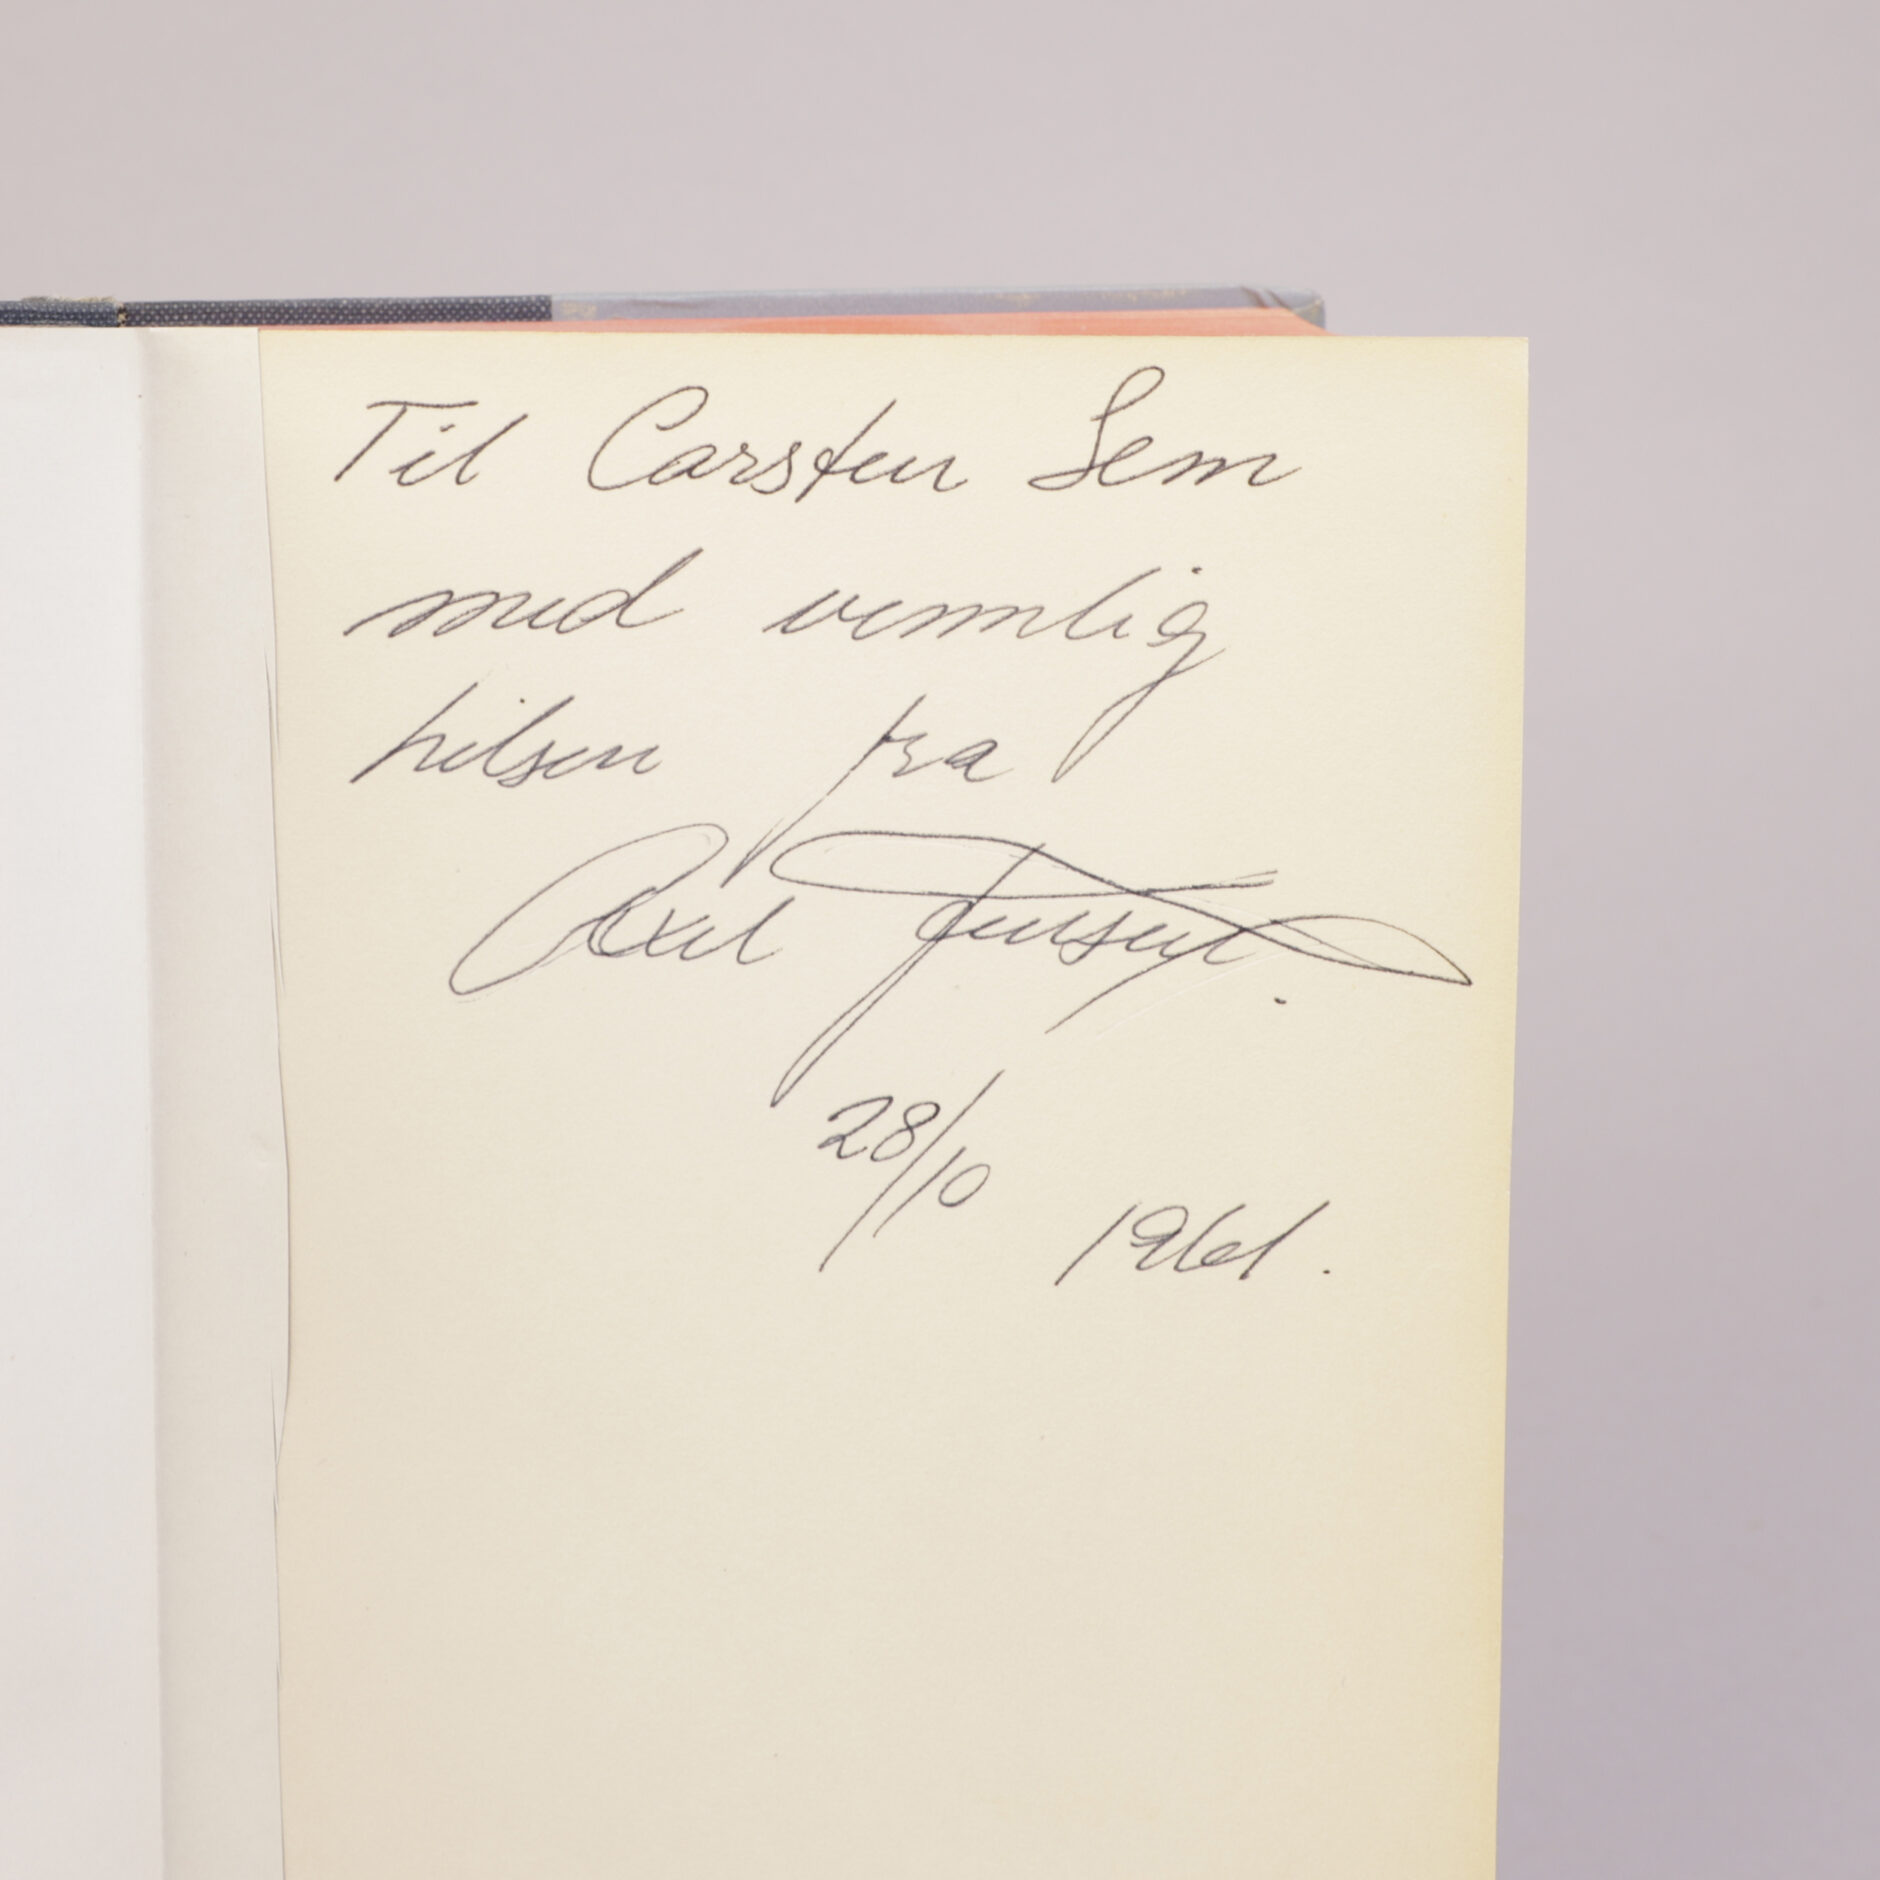 Til Carsten Sem
med vennlig
hilsen fra
Axel Jensen.
28/10
1961.